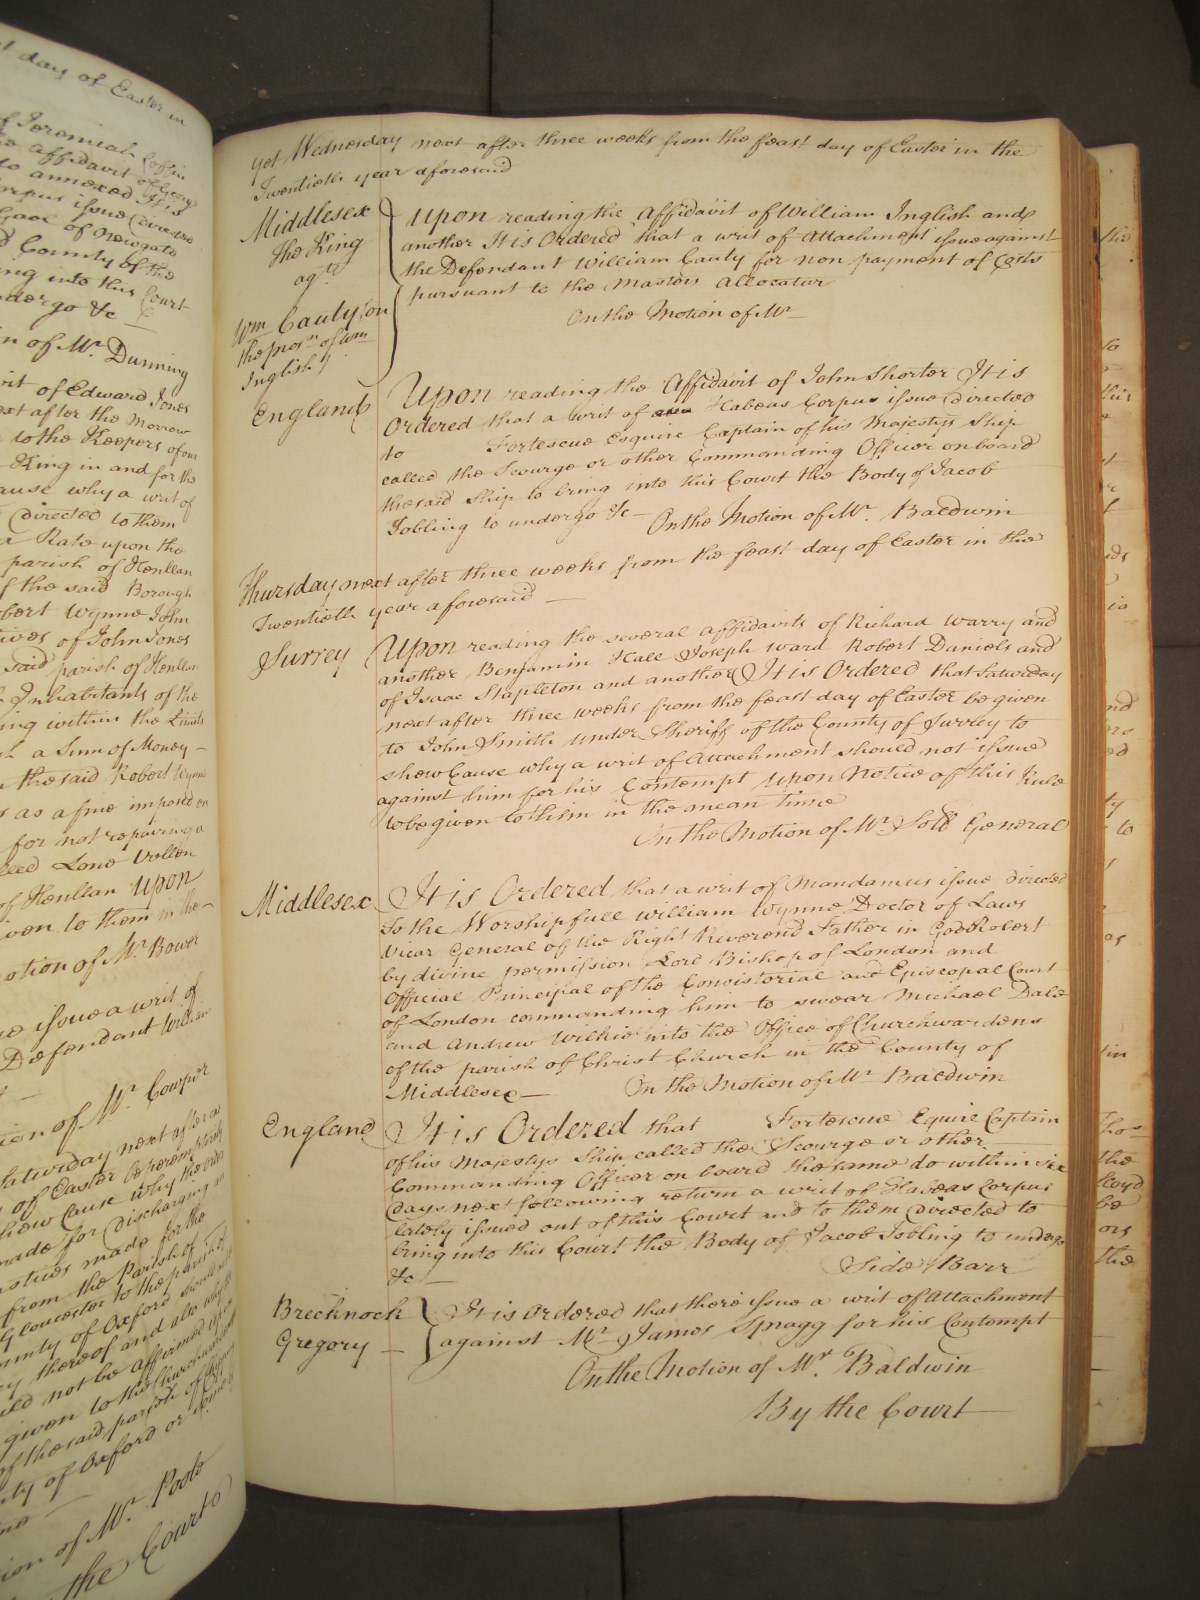 st day of Easter in
of Jeremiah Coffin
to annexed It is
Corpus issue directed
Gaol of Newgate
d County of the
ing into this Court
ndergo &c —
n of Mr. Dunning
vit of Edward Jones
ext after the Morrow
to the Keepers of our
King in and for the
ause why a writ of
directed to them
a Rate upon the
parish of Henllan
f the said Borough
obert Wynne John
tives of John Jones
said parish of Henllan
Inhabitants of the
ing within the Limits
a Sum of Money —
the said Robert Wynne
s as a fine imposed on
for not repairing a
of Henllan upon
ven to them in the —
otion of Mr. Bower
ue issue a writ of
Defendant William
ion of Mr. Cowper
Saturday next after
of Easter be peremptorily
shew Cause why the order
made for discharging an
made for the
from the Parish of
Gloucester to the parish of
unty of Oxford
ry thereof and also why the
uld not be affirmed upon
given to the Churchwardens
of the said parish of
nty of Oxford or some
ion of Mr. Poole
the Court
yet Wednesday next after three weeks from the feast day of Easter in the
Twentieth year aforesaid
Middlesex
The King
agt.
Wm Cauty (on
the prosn. of Wm
Inglish)
Upon reading the Affidavit of William Inglish and
another It is Ordered that a writ of Attachment issue against
the Defendant William Cauty for non payment of Costs
pursuant to the Masters Allocatur
On the Motion of Mr —
England
Upon reading the Affidavit of John Shorter It is
Ordered that a Writ of Habeas Corpus issue directed
to Fortescue Esquire Captain of his Majestys Ship
called the Scourge or other Commanding Officer on board
the said Ship to bring into this Court the Body of Jacob
Jobling to undergo &c — On the Motion of Mr. Baldwin
Thursday next after three weeks from the feast day of Easter in the
Twentieth year aforesaid —
Surrey
Upon reading the several affidavits of Richard Warry and
another Benjamin Hall Joseph Ward Robert Daniels and
of Isaac Stapleton and another It is Ordered that Saturday
next after three weeks from the feast day of Easter be given
to John Smith under Sheriff of the County of Surrey to
shew Cause why a writ of Attachment should not issue
against him for his Contempt upon Notice of this Rule
to be given to him in the mean time
On the Motion of Mr. Sollr General
Middlesex
It is Ordered that a writ of Mandamus issue directed
To the Worshipfull William Wynne Doctor of Laws
Vicar General of the Right Reverend Father in God Robert
by divine permission Lord Bishop of London and
Official Principal of the Consistorial and Episcopal Court
of London commanding him to swear Michael Dale
and Andrew Wilkie into the Office of Churchwardens
of the parish of Christ Church in the County of
Middlesex — On the Motion of Mr Baldwin
England
It is Ordered that Fortescue Equire Captain
of his Majestys Ship called the Scourge or other —
Commanding Officer on board the same do within six
days next following return a writ of Habeas Corpus
lately issued out of this Court and to them directed to
bring into this Court the Body of Jacob Jobling to undergo
&c — Side Barr
Brecknock
Gregory —
It is ordered that there issue a writ of Attachment
against Mr James Spragg for his Contempt
On the Motion of Mr Baldwin
By the Court